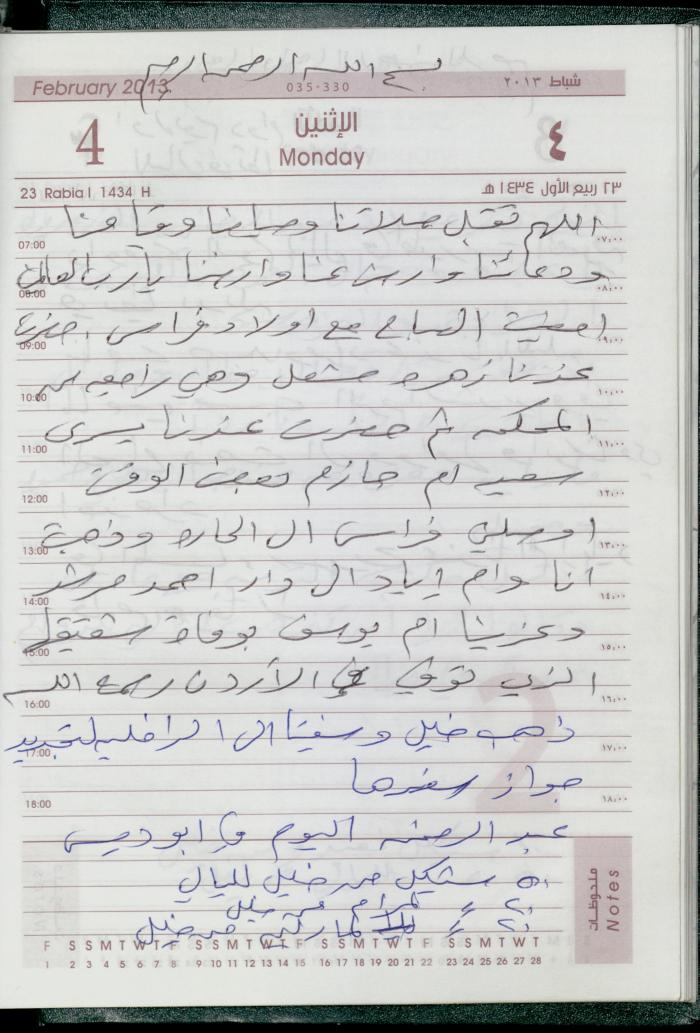 بسم الله الرحمن الرحيم
February 2013
035-330
شباط ٢٠١٣
4
الإثنين
Monday
٤
23 Rabia I 1434 H
٢٣ ربيع الأول ١٤٣٤ هـ
اللهم تقبل صلاتنا وصيامنا وقيامنا
07:00 ٠٧:٠٠
ودعائنا وارضى عنا وارضنا يا رب العالمين
08:00 ٠٨:٠٠
امضيت الصباح مع اولاد فراس حضرت
09:00 ٠٩:٠٠
عندنا زهره مشعل وهي راجعه من
10:00 ١٠:٠٠
المحكمه ثم حضرت عندنا يسرى
11:00 ١١:٠٠
سعيد ام حازم بعض الوقت
12:00 ١٢:٠٠
اوصلني فراس ال الحاره وذهبت
13:00 ١٣:٠٠
انا وام اياد ال دار احمد مرشد
14:00 ١٤:٠٠
وعزينا ام يوسف بوفاة شقيقها
15:00 ١٥:٠٠
الذي توفي في الأردن رحمه الله
16:00 ١٦:٠٠
ذهب خليل وسفيتا الى الداخليه لتجديد
17:00 ١٧:٠٠
جواز سفرها
18:00 ١٨:٠٠
عبد الرحمن اليوم في ابوديس
٥٠ شيكل من خليل لليال
لمرام من خليل
لمارتيه من خليل
ملحوظات
Notes
F S S M T W T F S S M T W T F S S M T W T F S S M T W T
1 2 3 4 5 6 7 8 9 10 11 12 13 14 15 16 17 18 19 20 21 22 23 24 25 26 27 28